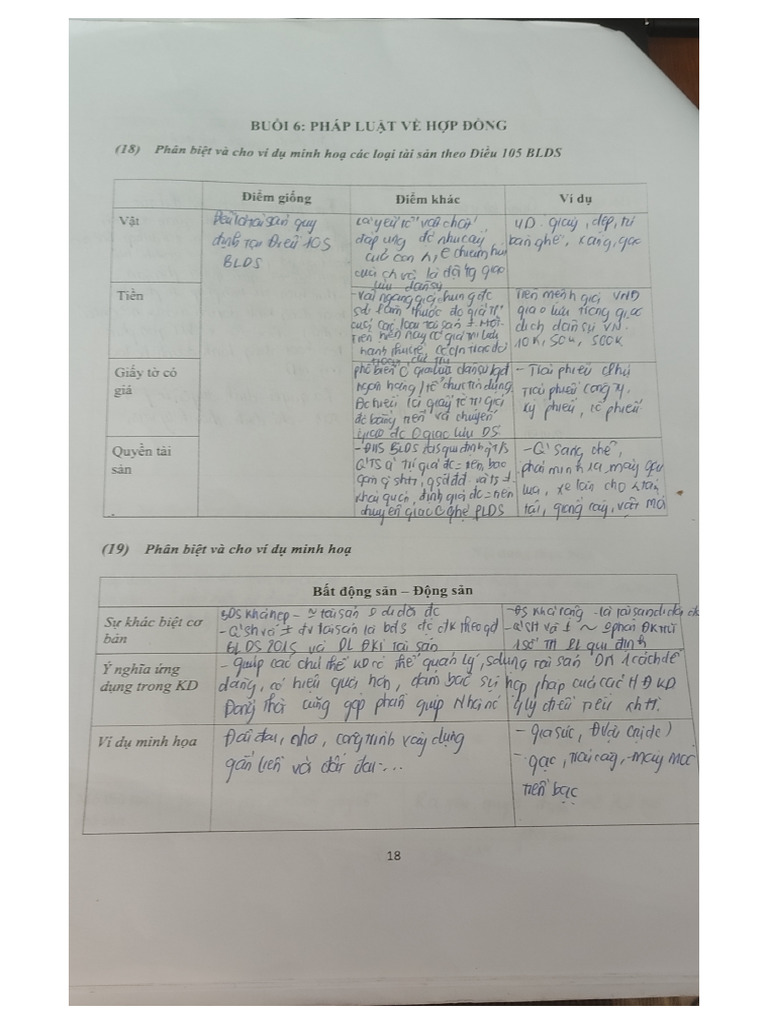 BUỔI 6: PHÁP LUẬT VỀ HỢP ĐỒNG
(18) Phân biệt và cho ví dụ minh hoạ các loại tài sản theo Điều 105 BLDS
Điểm giống
Điểm khác
Ví dụ
Vật
Đều là tài sản quy
định tại Điều 105
BLDS
là yếu tố vật chất
đáp ứng đc nhu cầu
của con
là đối tg giao
lưu dân sự
VD. giày, dép, tủ
bàn ghế, xăng, gạo
Tiền
- Vật ngang giá chung đc
sd làm thước đo giá trị
của các loại tài sản ≠.
Tiền hiện nay có giá trị lưu
hành
Tiền mệnh giá VND
giao lưu trong giao
dịch dân sự VN.
10k, 50k, 500k
Giấy tờ có
giá
phổ biến giao lưu dân sự
ngân hàng / tổ chức tín dụng.
Đc hiểu là giấy tờ trị giá
đc bằng tiền và chuyển
giao đc giao lưu DS
- Trái phiếu CPhủ
Trái phiếu công ty.
Kỳ phiếu, cổ phiếu
Quyền tài
sản
- Đ115 BLDS 2015 qui định q TS
QTS q trị giá đc = tiền, bao
gồm q shtt, qsdđđ và ts ≠
khái quát, định giá đc = tiền
chuyển giao BLDS
- Q sáng chế,
phát minh ra máy gặt
lúa, xe lăn cho
tật, giống cây, vật mới
(19) Phân biệt và cho ví dụ minh hoạ
Bất động sản – Động sản
Sự khác biệt cơ
bản
BĐS khái hẹp - ~ tài sản 0 di dời đc
- Q SH và ≠ đv tài sản là bđs đc đk theo qđ
BLDS 2015 và PL ĐKí tài sản
- ĐS khái rộng - là tài sản di dời đc
- Q SH và ≠ ~ 0 phải ĐK trừ
1 số TH PL qui định
Ý nghĩa ứng
dụng trong KD
- Giúp các chủ thể KD có thể quản lý, sdụng tài sản DN 1 cách dễ
dàng, có hiệu quả hơn, đảm bảo sự hợp pháp của các HĐKD
Đồng thời cũng góp phần giúp Nhà nc q lý điều tiết
Ví dụ minh họa
Đất đai, nhà, công trình xây dựng
gắn liền với đất đai...
- gia súc,
- gạo, trái cây, máy móc
tiền bạc
18